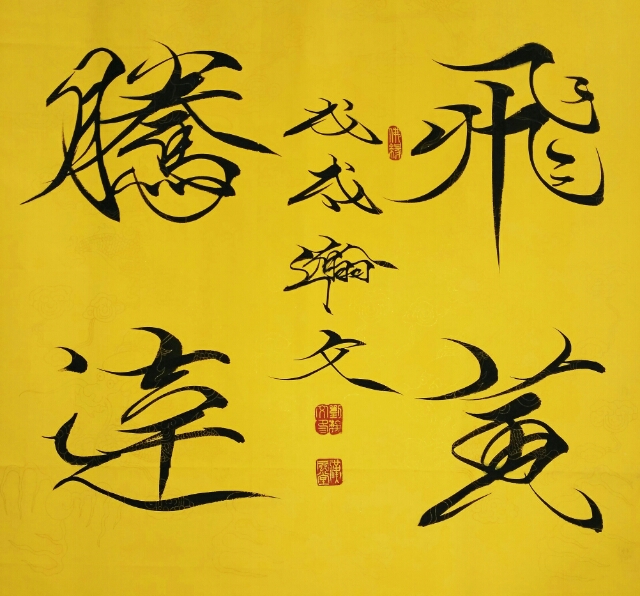 飛黃
騰達
戊戌瀚文